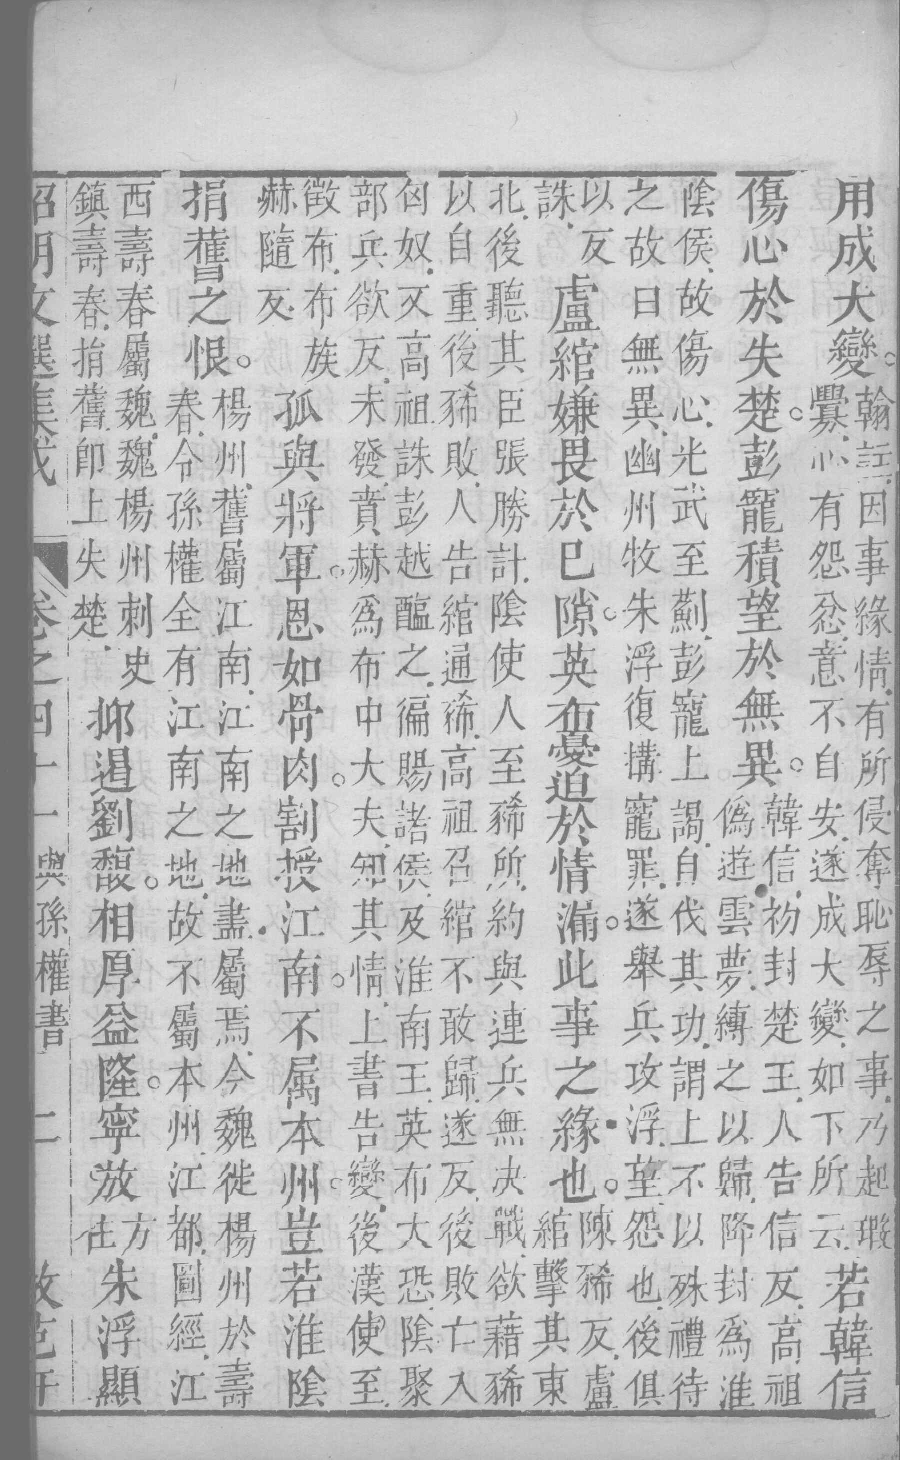 用成大變。翰註.因事緣情.有所侵奪恥辱之事.乃起瑕
釁.心有怨忿.意不自安.遂成大變.如下所云.若韓信
傷心於失楚。彭寵積望於無異。韓信.初封楚王.人告信反.高祖
偽遊雲夢.縛之以歸.降封為淮
陰侯.故傷心.光武至薊.彭寵上謁.自伐其功.謂上不以殊禮待
之故曰無異.幽州牧朱浮復搆寵罪.遂舉兵攻浮.望怨也.後俱
以反
誅.盧綰嫌畏於巳隙。英布憂迫於情漏。此事之緣也。陳豨反.盧
綰擊其東
北.後聽其臣張勝計.陰使人至豨所.約與連兵無决戰.欲藉豨
以自重.後豨敗.人告綰通豨.高祖召綰不敢歸.遂反.後敗亡入
匈奴.又高祖誅彭越醢之.徧賜諸侯.及淮南王.英布大恐.陰聚
部兵欲反.未發.賁赫爲布中大夫.知其情.上書告變.後漢使至
徵布.布族
赫隨反.孤與將軍。恩如骨肉。割授江南。不属本州。豈若淮陰
捐舊之恨。楊州.舊屬江南.江南之地.盡屬焉.今魏徙楊州於壽
春.令孫權全有江南之地.故不屬本州.江都.圖經.江
西壽春屬魏.魏楊州刺史
鎮壽春.捐舊.即上失楚.抑遏劉馥。相厚益隆。寧放方
往朱浮顯
昭明文選集成 卷之四十一 與孫權書 二